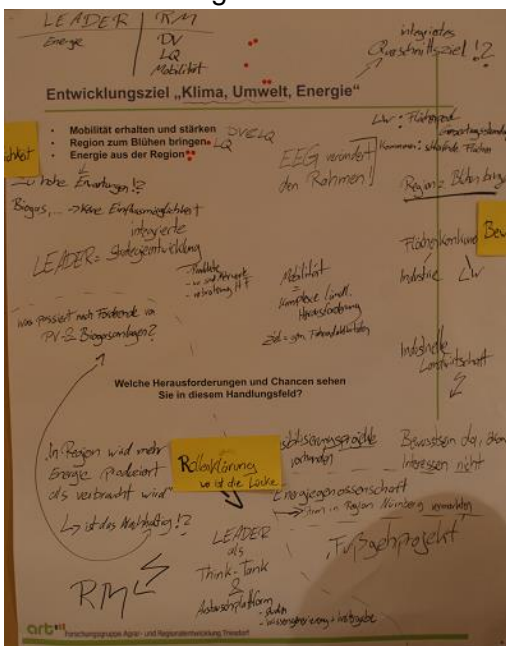 LEADER | RM
Energie
DV
LQ
Mobilität
integriertes
Querschnittsziel!?
Entwicklungsziel „Klima, Umwelt, Energie“
• Mobilität erhalten und stärken
• Region zum Blühen bringen LQ
• Energie aus der Region
DVE LQ
EEG verändert
den Rahmen!
LW: Flächenpool
Kommunen: Flächen
Region = Blühen bringen
zu hohe Erwartungen!?
Biogas, ... → keine Einflussmöglichkeit
integrierte
LEADER = Strategieentwicklung
Mobilität
=
komplexe ländl.
Herausforderung
Flächenkonkurrenz
Bew
Industrie LW
was passiert nach Förderende von
PV- & Biogasanlagen?
Industrielle
Landwirtschaft
Welche Herausforderungen und Chancen sehen
Sie in diesem Handlungsfeld?
„In Region wird mehr
Energie produziert
als verbraucht wird“
↳ ist das Nachhaltig!?
Rollenklärung
wo ist die Lücke
vorhanden
Bewusstsein da,
Interessen nicht
Energiegenossenschaft
→ Strom in Region Nürnberg vermarkten
„Fußgehprojekt“
LEADER
als
Think-Tank
&
Austauschplattform
RM
art
Forschungsgruppe Agrar- und Regionalentwicklung Triesdorf